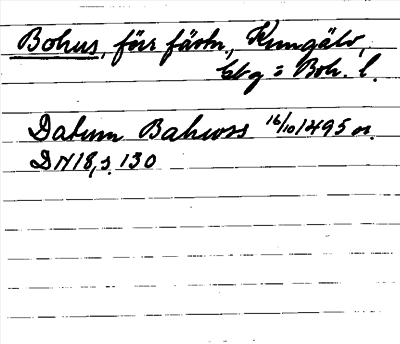 Bohus, förr fästn., Kungälv,
Göteborgs o Boh. l.
Datum Bahwss 16/10 1495 or.
DN 18, s. 130